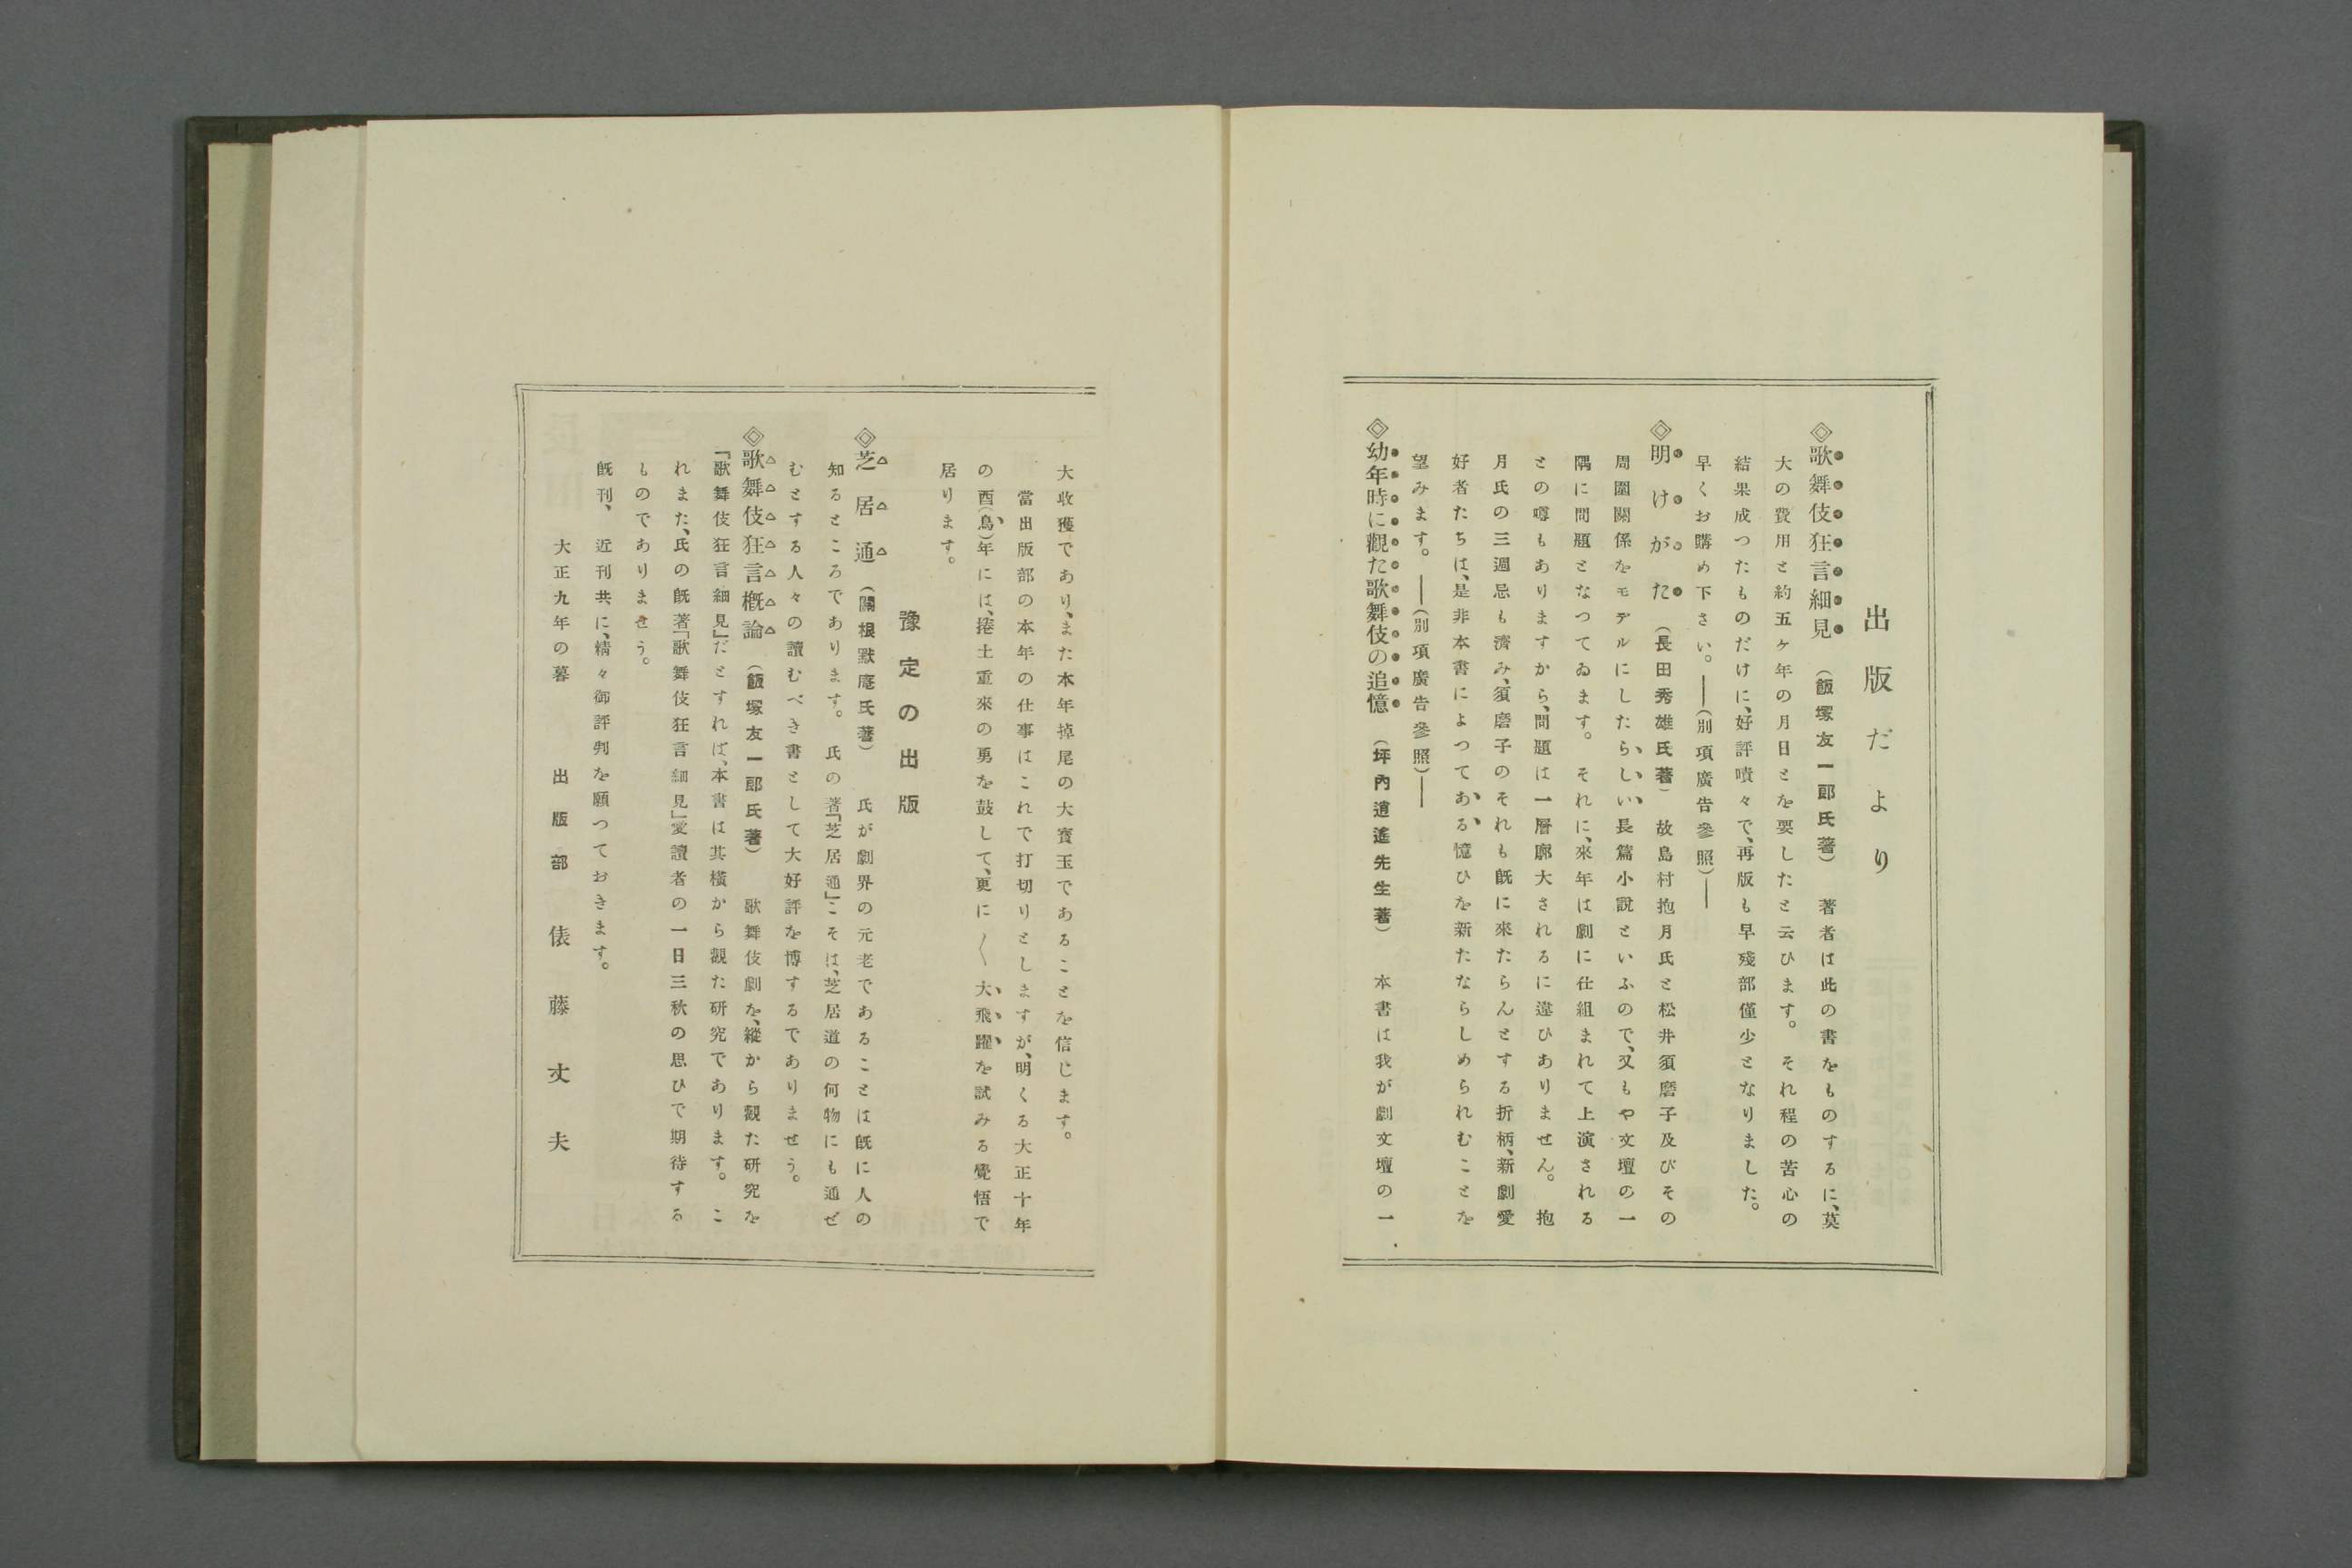 出版だより
◇歌舞伎狂言細見（飯塚友一郎氏著）　著者は此の書をものするに、莫
大の費用と約五ヶ年の月日とを要したと云ひます。それ程の苦心の
結果成つたものだけに、好評嘖々で、再版も早殘部僅少となりました。
早くお購め下さい。――（別項廣告參照）――
◇明けがた（長田秀雄氏著）　故島村抱月氏と松井須磨子及びその
周圍關係をモデルにしたらしい長篇小說といふので、又もや文壇の一
隅に問題となつてゐます。それに、來年は劇に仕組まれて上演される
との噂もありますから、問題は一層廓大されるに違ひありません。抱
月氏の三週忌も濟み、須磨子のそれも既に來たらんとする折柄、新劇愛
好者たちは、是非本書によつてある憶ひを新たならしめられむことを
望みます。――（別項廣告參照）――
◇幼年時に觀た歌舞伎の追憶（坪內逍遙先生著）　本書は我が劇文壇の一
大收獲であり、また本年掉尾の大寶玉であることを信じます。
當出版部の本年の仕事はこれで打切りとしますが、明くる大正十年
の酉（鳥）年には、捲土重來の勇を鼓して、更に〱大飛躍を試みる覺悟で
居ります。
豫定の出版
◇芝居通（關根默庵氏著）　氏が劇界の元老であることは既に人の
知るところであります。氏の著『芝居通』こそは、芝居道の何物にも通ぜ
むとする人々の讀むべき書として大好評を博するでありませう。
◇歌舞伎狂言概論（飯塚友一郎氏著）　歌舞伎劇を、縱から觀た研究を
『歌舞伎狂言細見』だとすれば、本書は其橫から觀た研究であります。こ
れまた、氏の既著『歌舞伎狂言細見』愛讀者の一日三秋の思ひで期待する
ものでありませう。
既刊、近刊共に、精々御評判を願つておきます。
大正九年の暮　出版部　俵藤丈夫